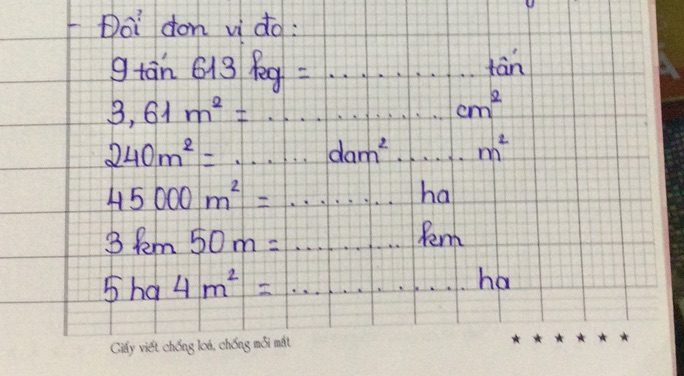 - Đổi đơn vị đo:
9 tấn 613 kg = .............. tấn
3,61 m² = .............. cm²
240m² = ....... dam² ...... m²
45 000 m² = ......... ha
3 km 50 m = .......... km
5 ha 4 m² = .............. ha
Giấy viết chống loá, chống mỏi mắt